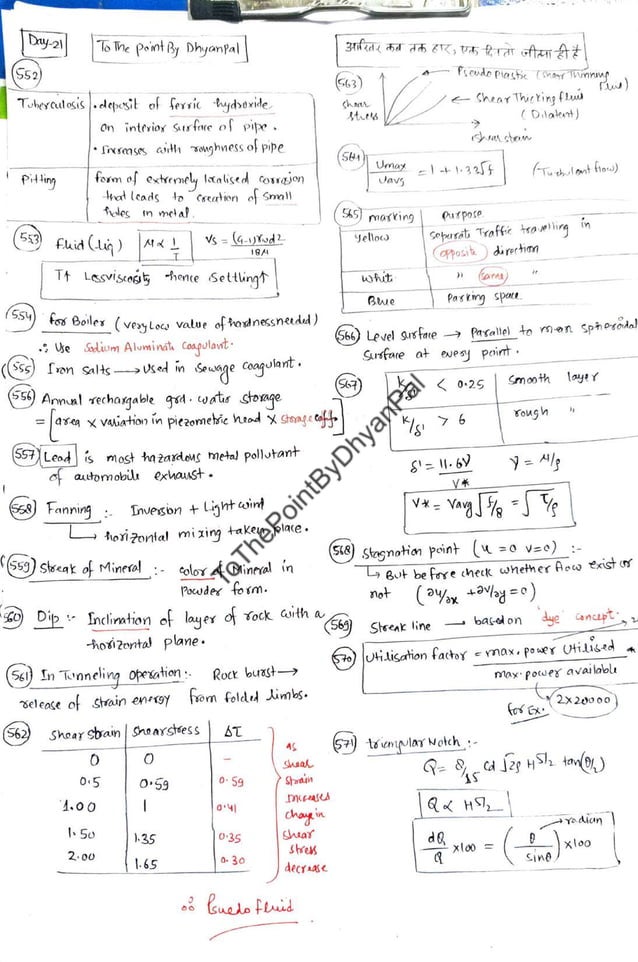 Day-21
To The Point By DhyanPal
552
Tuberculosis • deposit of ferric hydroxide
on interior surface of pipe.
• Increases with roughness of pipe
Pitting form of extremely localised corrosion
that leads to creation of small
holes in metal.
553 fluid (liq) μ ∝ 1/T Vs = (G-1)γwd²/18μ
T↑ Less viscosity hence settling↑
554 for Boiler (very Low value of hardness needed)
∴ Use Sodium Aluminate coagulant.
555 Iron salts → Used in sewage coagulant.
556 Annual rechargable grd. water storage
= [area × variation in piezometric head × storage coff.]
557 Lead is most hazardous metal pollutant
of automobile exhaust.
558 Fanning :- Inversion + Light wind
→ horizontal mixing taken place.
559 Streak of Mineral :- color of Mineral in
Powder form.
560 Dip :- Inclination of layer of rock with a
horizontal plane.
561 In Tunneling operation :- Rock burst →
release of strain energy from folded limbs.
562 shear strain shear stress Δτ
0 0 -
0.5 0.59 0.59
1.00 1 0.41
1.50 1.35 0.35
2.00 1.65 0.30
as
shear
strain
increases
change in
shear
stress
decrease
∴ Psuedo fluid
आखिर कब तक हार, एक दिन तो जीतना ही है
563 shear
stress
Pseudo plastic (shear thinning
fluid)
Shear Thicking fluid
(Dilatent)
shear strain
564 Umax/Uavg = 1 + 1.33√f (Turbulent flow)
565 marking Purpose
Yellow Separate Traffic travelling in
opposite direction
White " same "
Blue Parking space.
566 Level surface → Parallel to mean spheroidal
surface at every point.
567 K/δ' < 0.25 smooth layer
K/δ' > 6 rough "
δ' = 11.6ν/V* ν = μ/ρ
V* = Vavg √f/8 = √τ/ρ
568 Stagnation point (u = 0 v = 0) :-
→ But before check whether flow exist or
not (∂u/∂x + ∂v/∂y = 0)
569 Streak line → based on 'dye' concept.
570 Utilisation factor = max. power Utilised
max. power available
for Ex. 2×20000
571 triangular Notch :-
Q = 8/15 Cd √2g H^5/2 tan(θ/2)
Q ∝ H^5/2
radian
dQ/Q ×100 = (θ/sinθ) ×100
toThePointByDhyanPal